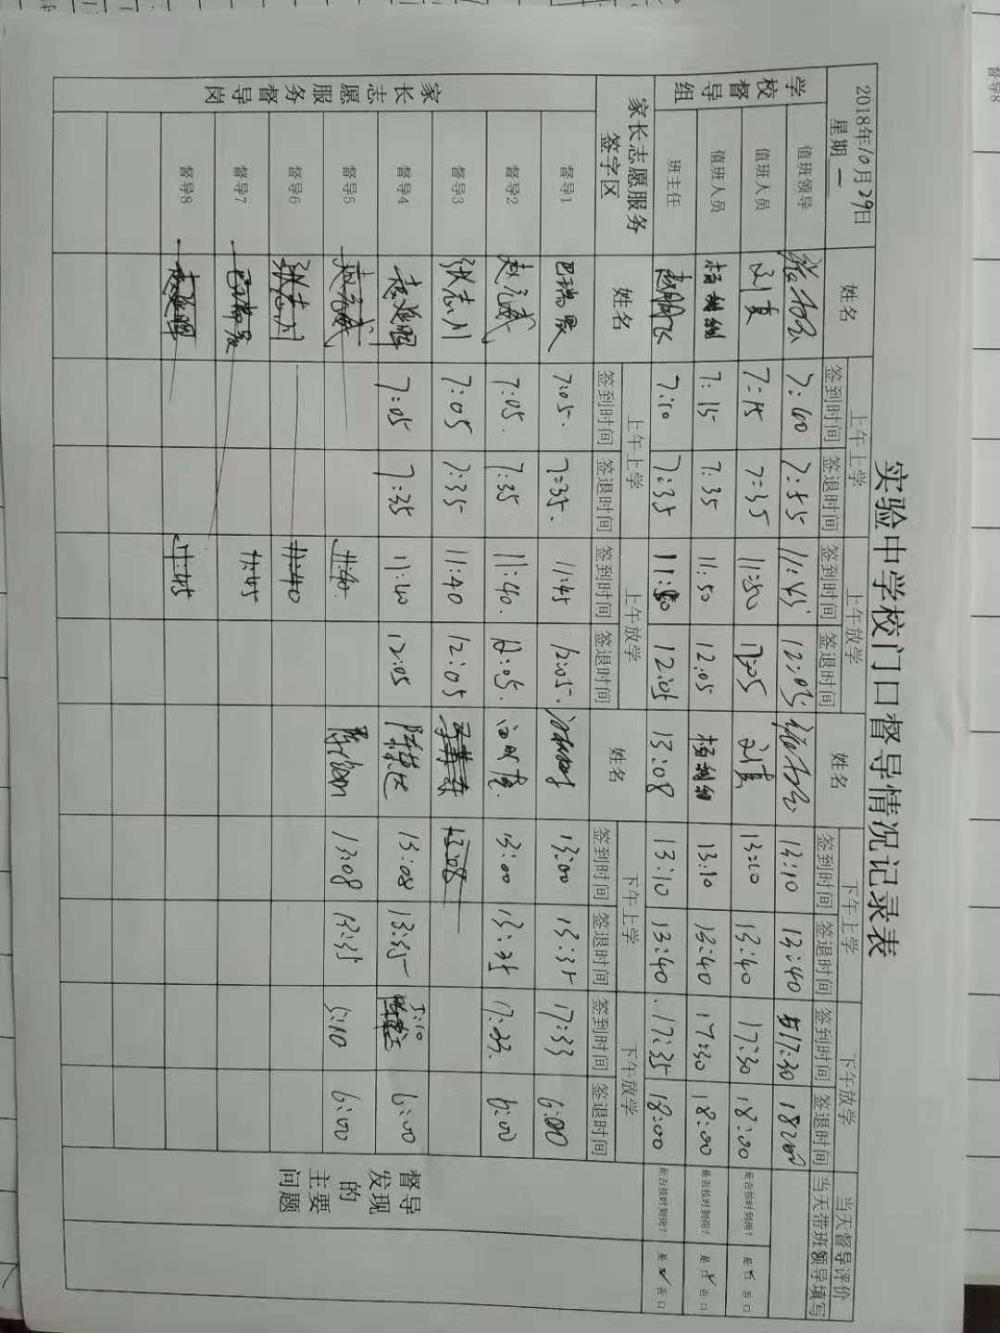 实验中学校门口督导情况记录表
2018年10月29日
星期一
姓名
上午上学
上午放学
姓名
下午上学
下午放学
当天督导评价
当天带班领导填写
签到时间
签退时间
签到时间
签退时间
签到时间
签退时间
签到时间
签退时间
学校督导组
值班领导
11:45
12:05
13:10
13:40
17:30
18:00
值班人员
刘真
7:15
7:35
11:50
12:05
刘真
13:10
13:40
17:30
18:00
是否按时到岗?
是 否口
值班人员
7:15
7:35
11:50
12:05
13:10
13:40
17:30
18:00
是否按时到岗?
是 否口
班主任
7:10
7:35
11:50
12:05
13:08
13:10
13:40
17:35
18:00
是否按时到岗?
是 否口
家长志愿服务
签字区
姓名
上午上学
上午放学
姓名
下午上学
下午放学
签到时间
签退时间
签到时间
签退时间
签到时间
签退时间
签到时间
签退时间
家长志愿服务督导岗
督导1
7:05.
7:35.
11:45
12:05.
13:00
13:35
17:33
6:00
督导2
7:05.
7:35
11:40.
12:05.
13:00
13:35
17:33.
6:00
督导3
张志川
7:05
7:35
11:40
12:05
13:08
督导4
7:05
7:35
11:40
12:05
13:08
13:35
5:10
6:00
督导5
11:40
13:08
13:35
5:10
6:00
督导6
张志川
11:40
督导7
11:45
督导8
11:45
督导
发现
的
主要
问题
督导8